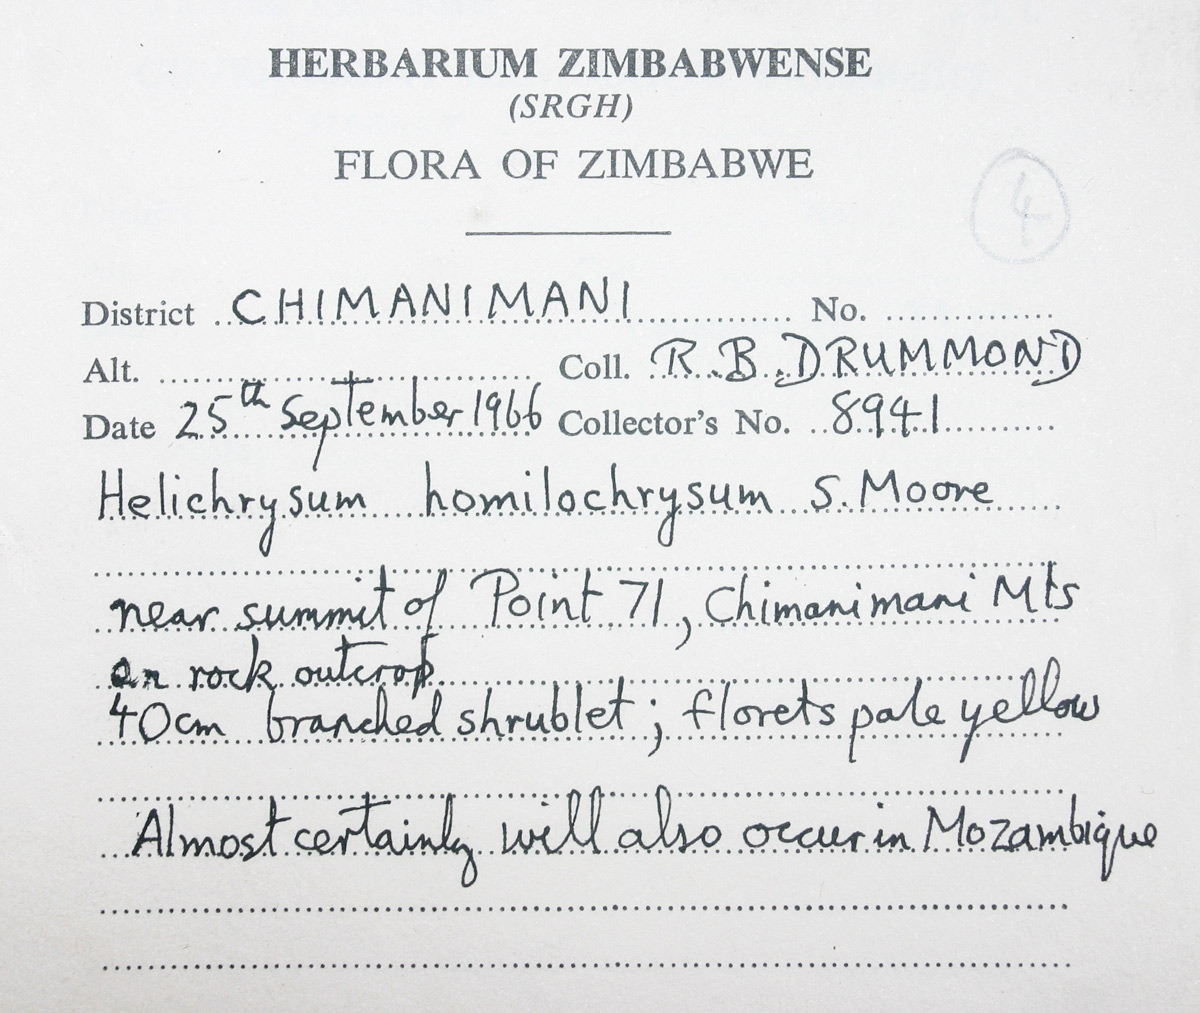 HERBARIUM ZIMBABWENSE
(SRGH)
FLORA OF ZIMBABWE
4
District CHIMANIMANI No.
Alt. Coll. R.B. DRUMMOND
Date 25th September 1966 Collector's No. 8941
Helichrysum homilochrysum S. Moore
near summit of Point 71, Chimanimani Mts
on rock outcrop
40cm branched shrublet; florets pale yellow
Almost certainly will also occur in Mozambique